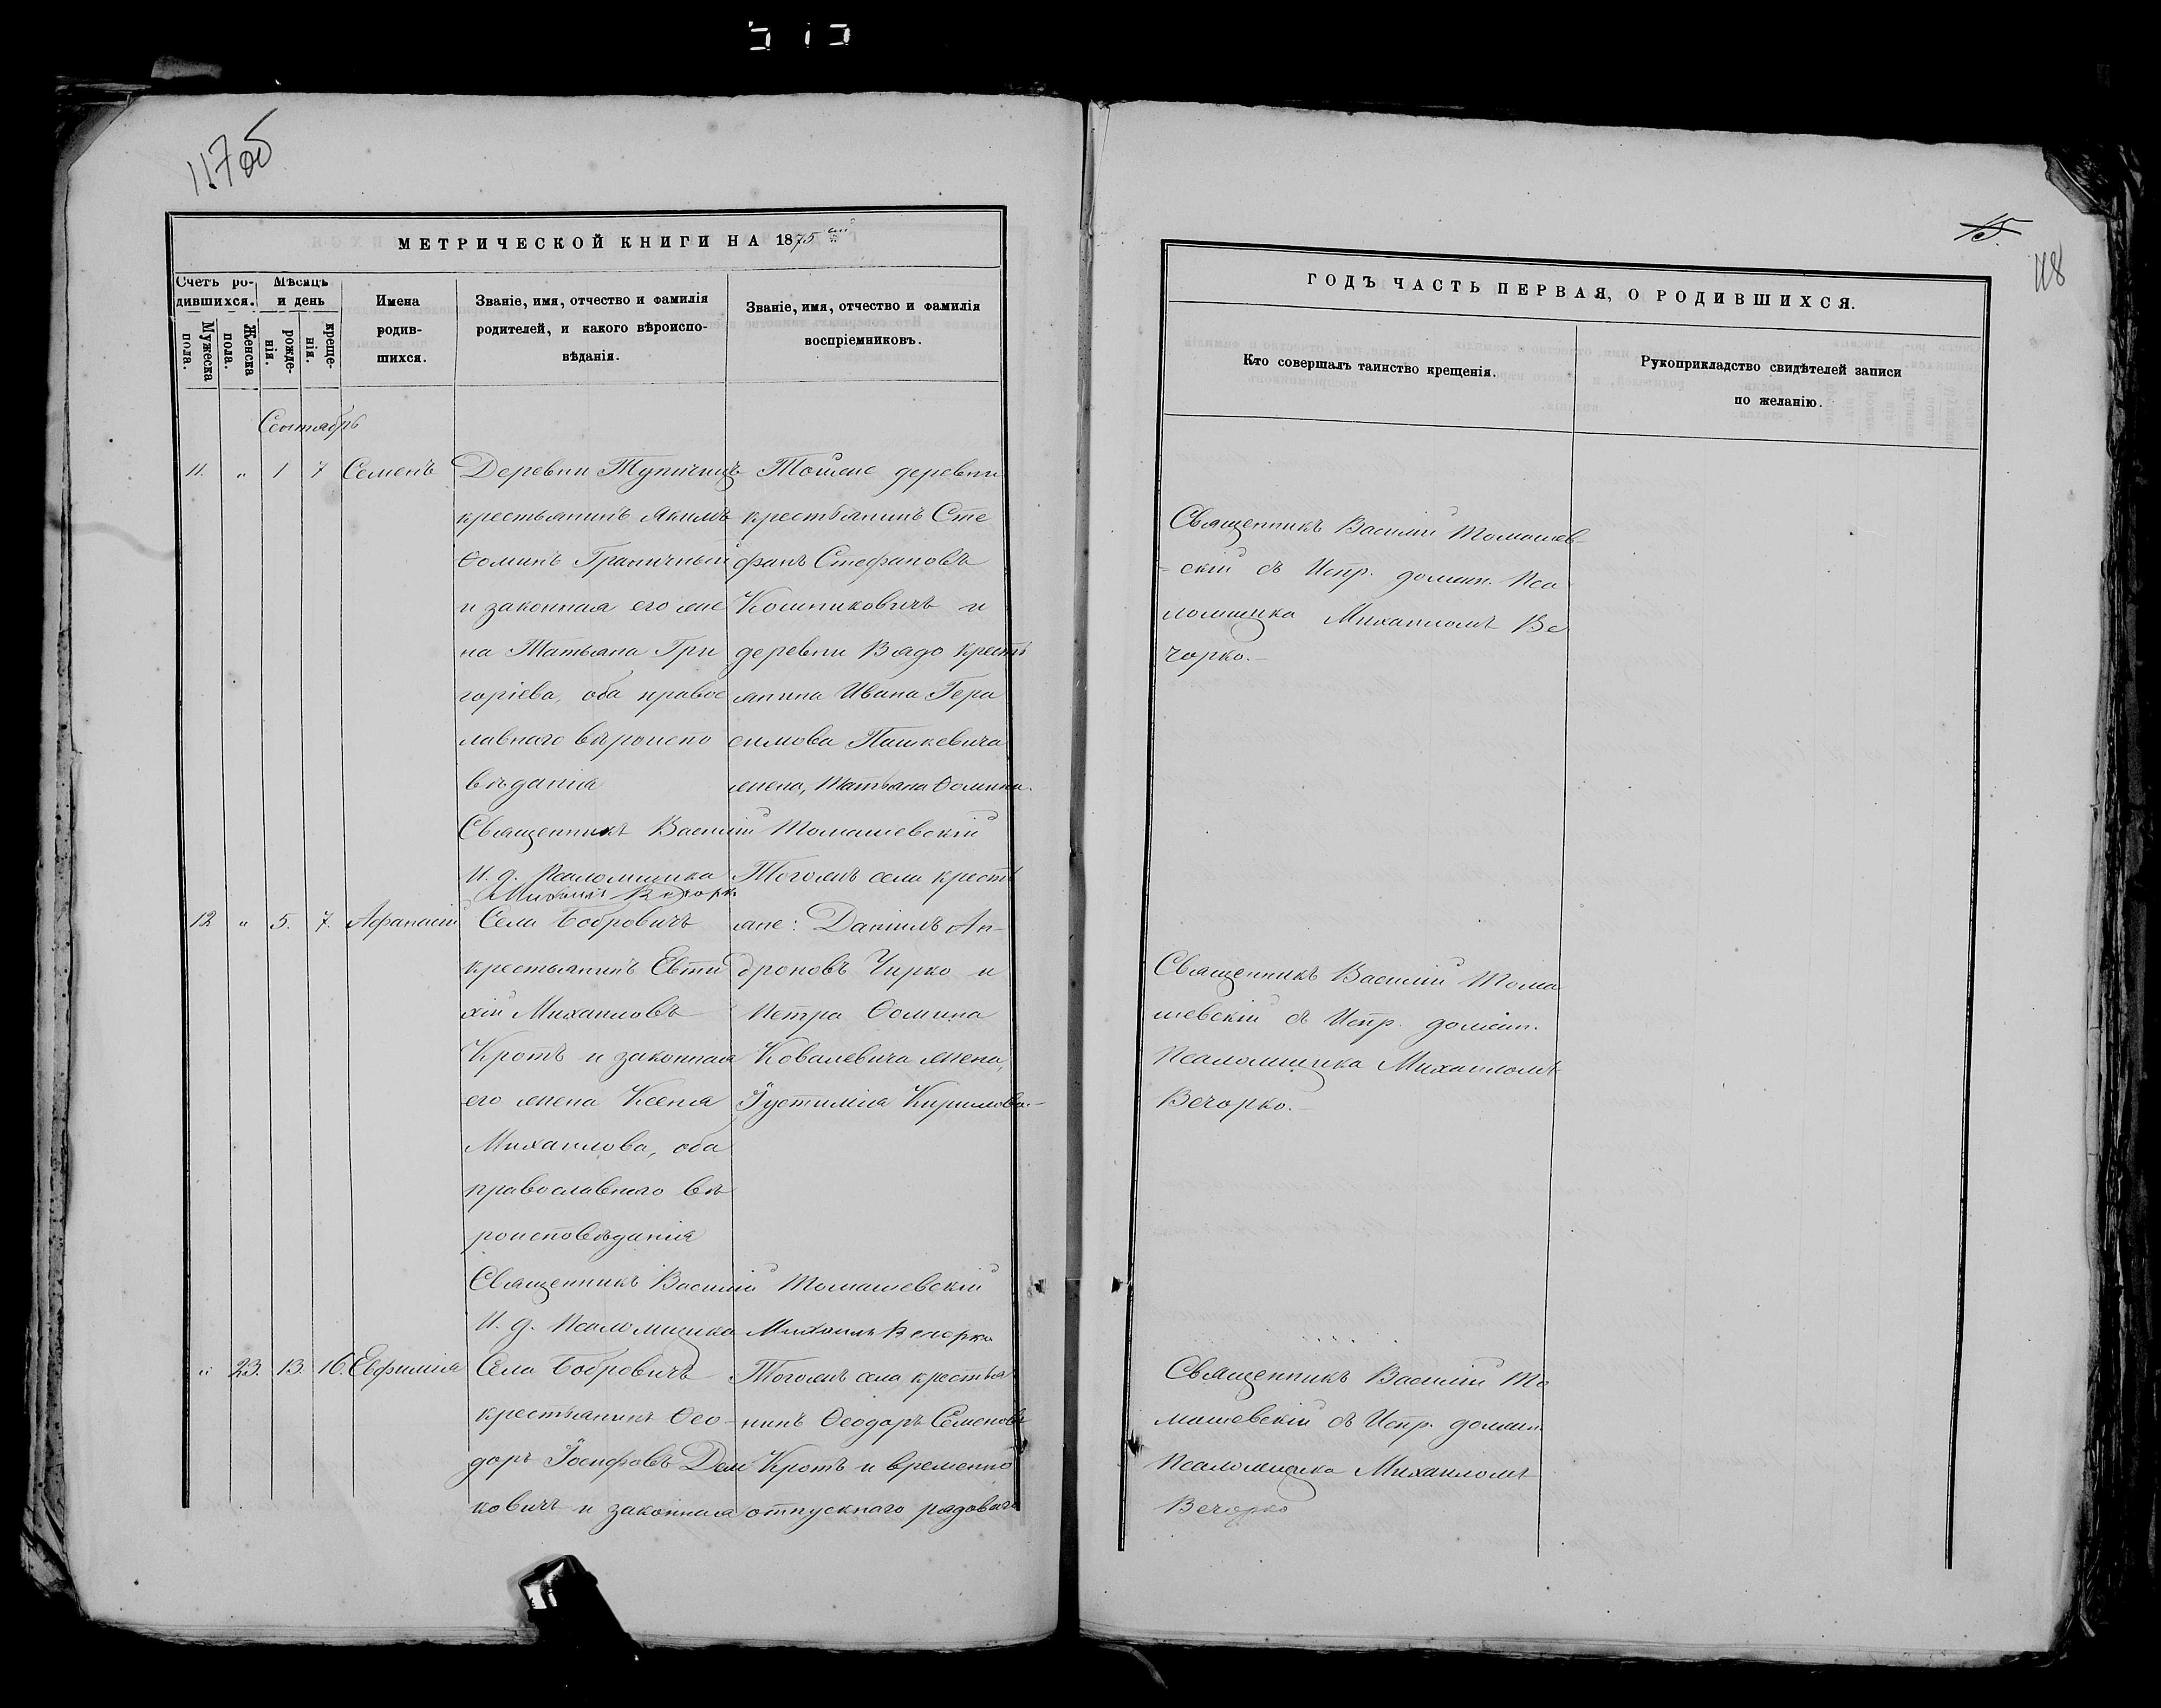 117 об
МЕТРИЧЕСКОЙ КНИГИ НА 1875 ый
Счетъ ро-
дившихся.
Мужеска пола.
Женска пола.
Мѣсяцъ
и день
рожде-
нія.
креще-
нія.
Имена
родив-
шихся.
Званіе, имя, отчество и фамилія
родителей, и какого вѣроиспо-
вѣданія.
Званіе, имя, отчество и фамилія
воспріемниковъ.
Сентябрь
11. " 1 7 Семенъ
Деревни Тупичицъ
крестьянинъ Якимъ
Ѳоминъ Граничный
и законная его же
на Татьяна Гри
горіева, оба правос
лавнаго вѣроиспо
вѣданія
Тойже деревни
крестьянинъ Сте
фанъ Стефановъ
Кошниковичъ и
деревни Вядо крестъ
янина Ивана Гера
симова Пашкевича
жена, Татьяна Ѳомина.
Священникъ Василій Томашевскій
И. д. Псаломщика
Михаилъ Вечорко
12 " 5. 7. Афанасій
Села Бобровичъ
крестьянинъ Евти
хій Михаиловъ
Кротъ и законная
его жена Ксенія
Михаилова, оба
православнаго вѣ
роисповѣданія
Тогожъ села крестъ
яне: Даніилъ Ан-
дроновъ Чирко и
Петра Ѳомина
Ковалевича жена,
Іустимія Кирилова.-
Священникъ Василій Томашевскій
И. д. Псаломщика Михаилъ Вечорко
" 23. 13. 16. Евфимія
Села Бобровичъ
крестьянинъ Ѳео-
доръ Іосифовъ Дем
ковичъ и законная
Тогожъ села крестья
нинъ Ѳеодоръ Семеновъ
Кротъ и временно
отпускнаго рядоваго
15.
118
ГОДЪ ЧАСТЬ ПЕРВАЯ, О РОДИВШИХСЯ.
Кто совершалъ таинство крещенія.
Рукоприкладство свидѣтелей записи
по желанію.
Священникъ Василій Томашев-
скій съ Испр. должн. Пса
ломщика Михаиломъ Ве
чорко.-
Священникъ Василій Тома
шевскій съ Испр. должн.
Псаломщика Михаиломъ
Вечорко.-
Священникъ Василій То
машевскій съ Испр. должн.
Псаломщика Михаиломъ
Вечорко